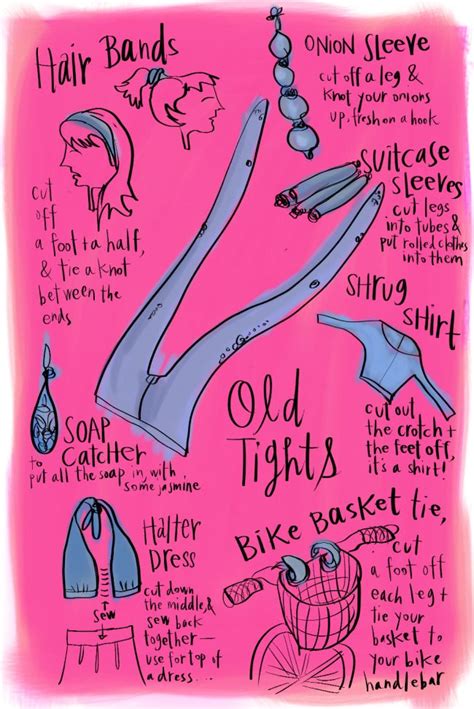 Hair Bands
cut
off
a foot + a half,
& tie a knot
between the
ends
ONION SLEEVE
cut off a leg &
knot your onions
up, fresh on a hook
Suitcase
Sleeves
cut legs
into tubes &
put rolled clothes
into them
SHRUG
SHIRT
cut out
the crotch +
the feet off,
it's a shirt!
Old
Tights
SOAP
Catcher
to
put all the soap in, with
some jasmine
Halter
DRESS
cut down
the middle, &
sew back
together—
use for top of
a dress...
↑
Sew
↓
Bike Basket tie,
cut
a foot off
each leg +
tie your
basket to
your bike
handlebar